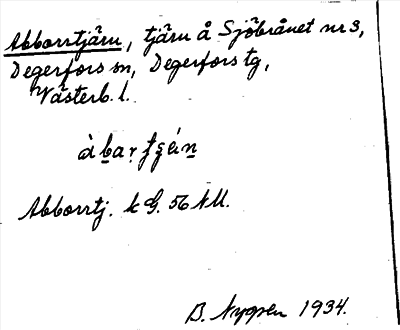 Abborrtjärn, tjärn å Sjöbrånet nr 3,
Degerfors sn, Degerfors tg,
Västerb. l.
Abborrtj. k G. 56 NU.
B. Nygren 1934.